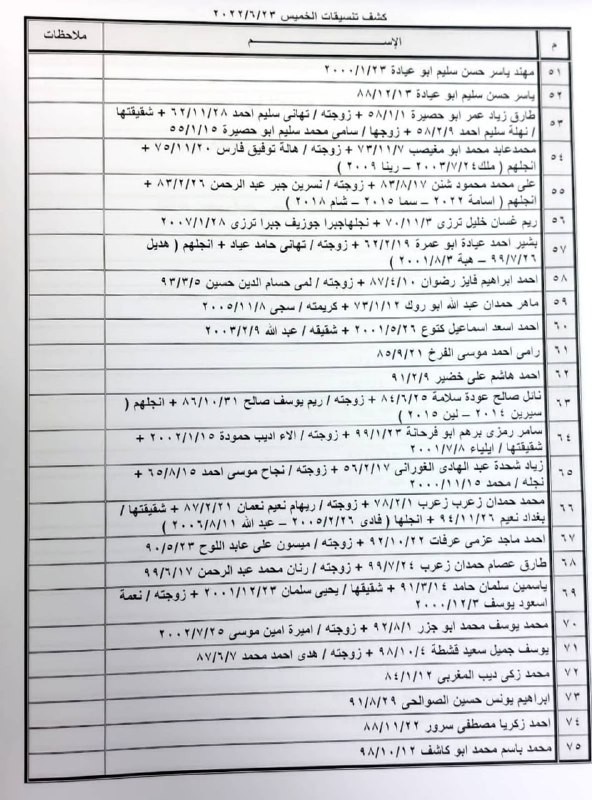 كشف تنسيقات الخميس ٢٠٢٢/٦/٢٣
م الإســـــــــم ملاحظات
٥١ مهند ياسر حسن سليم ابو عيادة ٢٠٠٠/١/٢٣
٥٢ ياسر حسن سليم ابو عيادة ٨٨/١٢/١٣
٥٣ طارق زياد عمر ابو حصيرة ٥٨/١/١ + زوجته / تهانى سليم احمد ٦٢/١١/٢٨ + شقيقتها
/ نهلة سليم احمد ٥٨/٢/٩ + زوجها / سامى محمد سليم ابو حصيرة ٥٥/١/١٥
٥٤ محمدعابد محمد ابو مغيصب ٧٣/١١/٧ + زوجته / هالة توفيق فارس ٧٥/١١/٢٠ +
انجلهم ( ملك ٢٠٠٣/٧/٢٤ – رينا ٢٠٠٩ )
٥٥ على محمد محمود شنن ٨٣/٨/١٧ + زوجته / نسرين جبر عبد الرحمن ٨٣/٢/٢٦ +
انجلهم ( اسامة ٢٠٢٢ – سما ٢٠١٥ – شام ٢٠١٨ )
٥٦ ريم غسان خليل ترزى ٧٠/١١/٣ + نجلهاجبرا جوزيف جبرا ترزى ٢٠٠٧/١/٢٨
٥٧ بشير احمد عيادة ابو عمرة ٦٢/٢/١٩ + زوجته / تهانى حامد عياد + انجلهم ( هديل
٩٩/٧/٢٦ – هبة ٢٠٠١/٨/٣ )
٥٨ احمد ابراهيم فايز رضوان ٨٧/٤/١٠ + زوجته / لمى حسام الدين حسين ٩٣/٣/٥
٥٩ ماهر حمدان عبد الله ابو روك ٧٣/١/١٢ + كريمته / سجى ٢٠٠٥/١١/٨
٦٠ احمد اسعد اسماعيل كنوع ٢٠٠١/٥/٢٦ + شقيقه / عبد الله ٢٠٠٣/٢/٩
٦١ رامى احمد موسى الفرخ ٨٥/٩/٢١
٦٢ احمد هاشم على خضير ٩١/٢/٩
٦٣ نائل صالح عودة سلامة ٨٤/٦/٢٥ + زوجته / ريم يوسف صالح ٨٦/١٠/٣١ + انجلهم (
سيرين ٢٠١٤ – لين ٢٠١٥ )
٦٤ سامر رمزى برهم ابو فرحانة ٩٩/١/٢٣ + زوجته / الاء اديب حمودة ٢٠٠٢/١/١٥ +
شقيقتها / ايلياء ٢٠٠١/٧/٨
٦٥ زياد شحدة عبد الهادى الغورانى ٥٦/٢/١٧ + زوجته / نجاح موسى احمد ٦٥/٨/١٥ +
نجله / محمد ٢٠٠٠/١١/١٥
٦٦ محمد حمدان زعرب زعرب ٧٨/٢/١ + زوجته / ريهام نعيم نعمان ٨٧/٢/٢١ + شقيقتها /
بغداد نعيم ٩٤/١١/٢٦ + انجلها ( فادى ٢٠٠٥/٢/٢٦ – عبد الله ٢٠٠٦/٨/١١ )
٦٧ احمد ماجد عزمى عرفات ٩٢/١٠/٢٢ + زوجته / ميسون على عابد اللوح ٩٠/٥/٢٣
٦٨ طارق عصام حمدان زعرب ٩٩/٧/٢٤ + زوجته / رنان محمد عبد الرحمن ٩٩/٦/١٧
٦٩ ياسمين سلمان حامد ٩١/٣/١٤ + شقيقها / يحيى سلمان ٢٠٠١/١٢/٢٣ + زوجته / نعمة
اسعود يوسف ٢٠٠٠/١٢/٣
٧٠ محمد يوسف محمد ابو جزر ٩٢/٨/١ + زوجته / اميرة امين موسى ٢٠٠٢/٧/٢٥
٧١ يوسف جميل سعيد قشطة ٩٨/١٠/٤ + زوجته / هدى احمد محمد ٨٧/٦/٧
٧٢ محمد زكى ديب المغربى ٨٤/١/١٢
٧٣ ابراهيم يونس حسين الصوالحى ٩١/٨/٢٩
٧٤ احمد زكريا مصطفى سرور ٨٨/١١/٢٢
٧٥ محمد باسم محمد ابو كاشف ٩٨/١٠/١٢